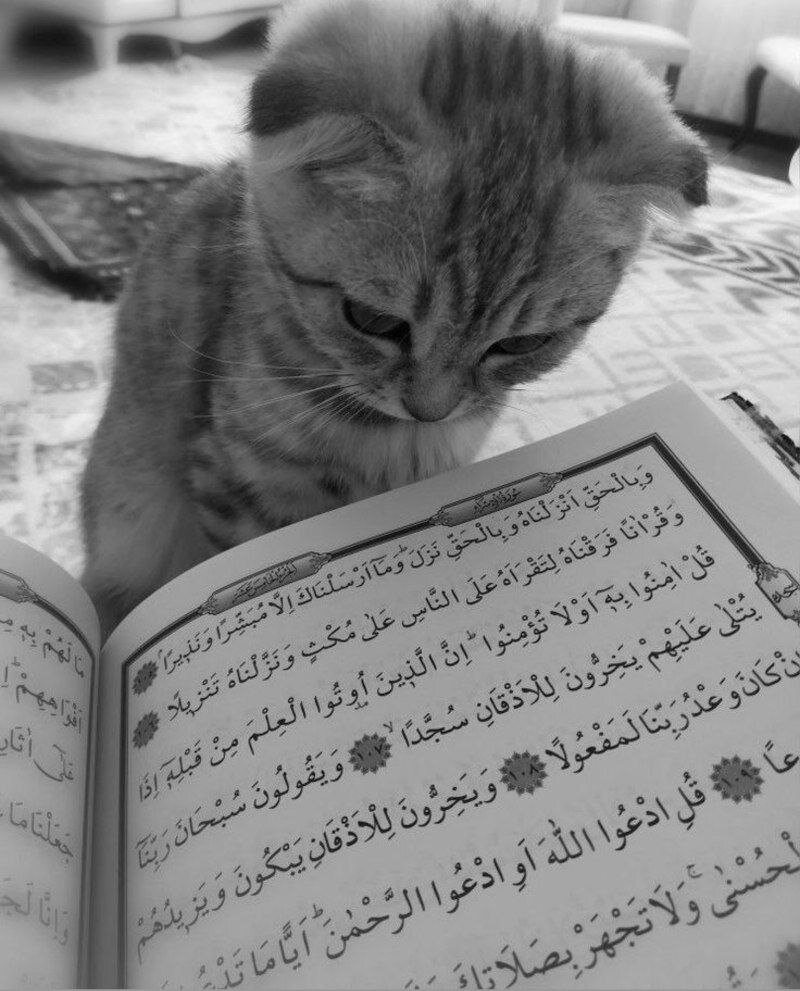 سُورَةُ الْاِسْرَاءِ
وَبِالْحَقِّ اَنْزَلْنَاهُ وَبِالْحَقِّ نَزَلَۜ وَمَٓا اَرْسَلْنَاكَ اِلَّا مُبَشِّرًا وَنَذ۪يرًاۢ ١٠٥
وَقُرْاٰنًا فَرَقْنَاهُ لِتَقْرَاَهُ عَلَى النَّاسِ عَلٰى مُكْثٍ وَنَزَّلْنَاهُ تَنْز۪يلًا ١٠٦
قُلْ اٰمِنُوا بِه۪ٓ اَوْ لَا تُؤْمِنُواۜ اِنَّ الَّذ۪ينَ اُو۫تُوا الْعِلْمَ مِنْ قَبْلِه۪ٓ اِذَا
يُتْلٰى عَلَيْهِمْ يَخِرُّونَ لِلْاَذْقَانِ سُجَّدًاۙ ١٠٧ وَيَقُولُونَ سُبْحَانَ رَبِّنَٓا
اِنْ كَانَ وَعْدُ رَبِّنَا لَمَفْعُولًا ١٠٨ وَيَخِرُّونَ لِلْاَذْقَانِ يَبْكُونَ وَيَز۪يدُهُمْ
١٠٩ قُلِ ادْعُوا اللّٰهَ اَوِ ادْعُوا الرَّحْمٰنَۜ اَيًّا مَا
الْحُسْنٰىۚ وَلَا تَجْهَرْ بِصَلَاتِكَ
مَا لَهُمْ بِه۪
اَفْوَاهِهِمْۜ
عَلٰٓى
جَعَلْنَا مَا
وَاِنَّا